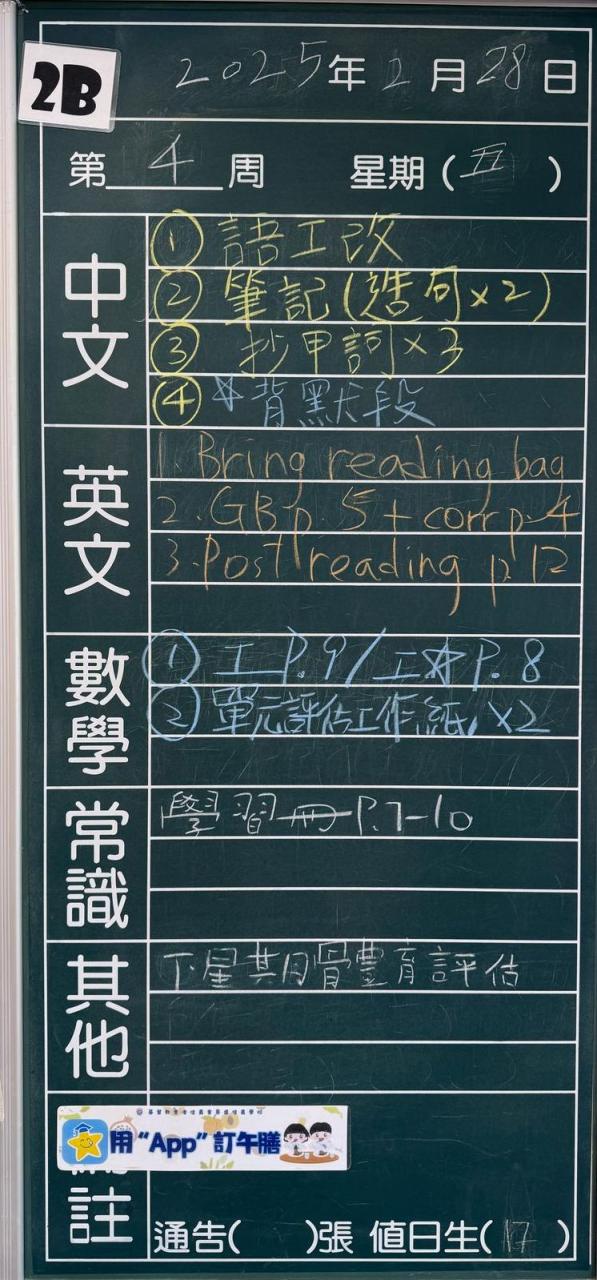 2B
2025年2月28日
第 4 周 星期(五)
中文
① 語工改
② 筆記(造句×2)
③ 抄甲詞×3
④ *背默段
英文
1. Bring reading bag
2. GB p. 5 + corr p. 4
3. Post reading p.12
數學
① 工P.9/工木P.8
② 單元評估工作紙×2
常識
學習冊P.7-10
其他
下星期體育評估
用“App”訂午膳
註
通告( )張 值日生(17)